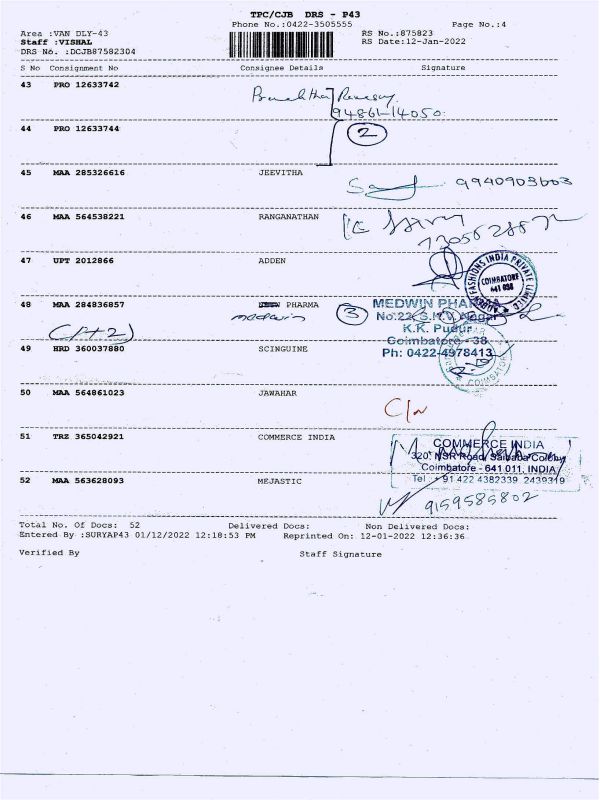 TPC/CJB DRS - P43
Phone No.:0422-3505555 Page No.:4
Area :VAN DLY-43 RS No.:875823
Staff :VISHAL RS Date:12-Jan-2022
DRS No. :DCJB87582304
S No Consignment No Consignee Details Signature
43 PRO 12633742
94861-14050
44 PRO 12633744 2
45 MAA 285326616 JEEVITHA
9940903603
46 MAA 564538221 RANGANATHAN
47 UPT 2012866 ADDEN
FASHIONS INDIA PRIVATE LIMITED
COIMBATORE
641 038
48 MAA 284836857 PHARMA 3 MEDWIN PHARMA
medwin No:22, S.M.V. Nagar
(1+2) K.K. Pudur
Coimbatore - 38
Ph: 0422-4978413
49 HRD 360037880 SCINGUINE
COIMBATORE
50 MAA 564861023 JAWAHAR
C/n
51 TRZ 365042921 COMMERCE INDIA
COMMERCE INDIA
320, NSR Road, Saibaba Colony
Coimbatore - 641 011. INDIA
Tel : +91 422 4382339 2439319
52 MAA 563628093 MEJASTIC
9159585802
Total No. Of Docs: 52 Delivered Docs: Non Delivered Docs:
Entered By :SURYAP43 01/12/2022 12:18:53 PM Reprinted On: 12-01-2022 12:36:36
Verified By Staff Signature